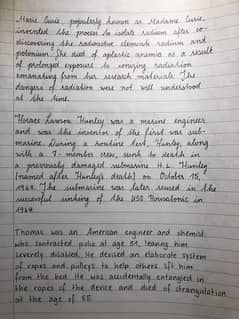 Marie Curie, popularly known as Madame Curie,
invented the process to isolate radium after co-
discovering the radioactive elements radium and
polonium. She died of aplastic anemia as a result
of prolonged exposure to ionizing radiation
emanating from her research materials. The
dangers of radiation were not well understood
at the time.
Horace Lawson Hunley was a marine engineer
and was the inventor of the first war sub-
marine. During a routine test, Hunley, along
with a 7-member crew, sunk to death in
a previously damaged submarine H.L. Hunley
(named after Hunley's death) on October 15,
1964. The submarine was later used in the
successful sinking of the USS Housatonic in
1964.
Thomas was an American engineer and chemist,
who contracted polio at age 51, leaving him
severely disabled. He devised an elaborate system
of ropes and pulleys to help others lift him
from the bed. He was accidentally entangled in
the ropes of the device and died of strangulation
at the age of 55.